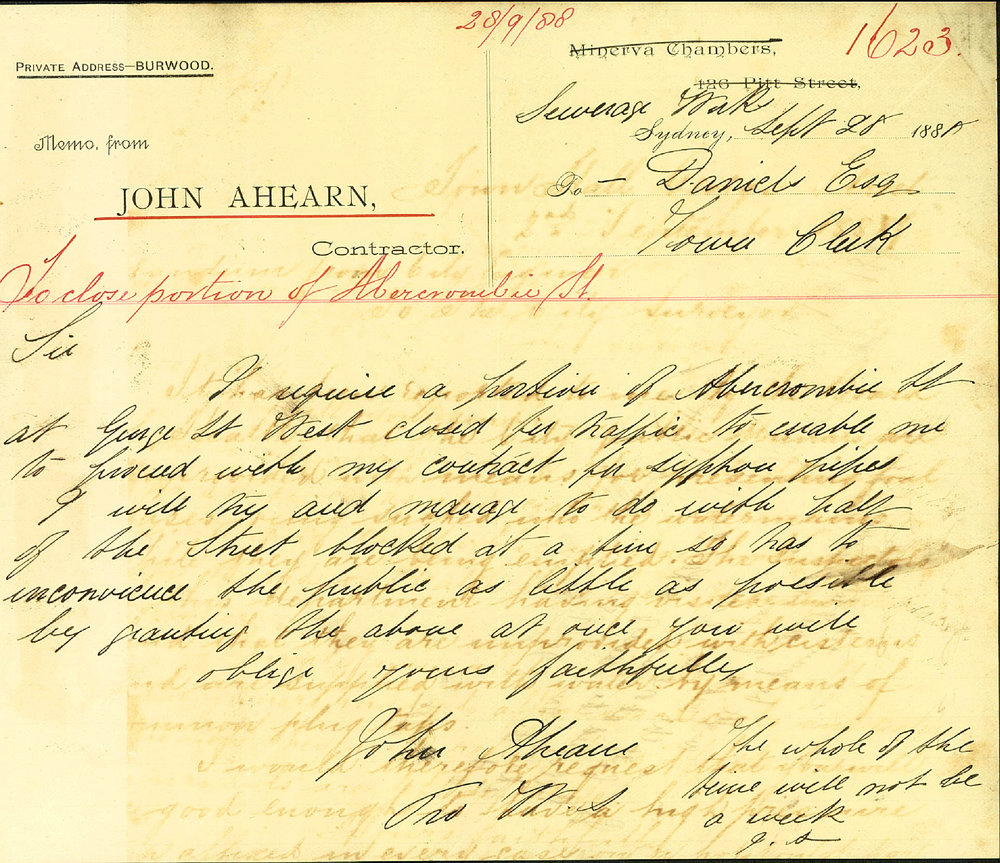 28/9/88
1623.
PRIVATE ADDRESS—BURWOOD.
Minerva Chambers,
126 Pitt Street,
Sewerage Work
Sydney, Sept 28 1888
Memo. from
JOHN AHEARN,
Contractor.
To – Daniels Esq
Town Clerk
To close portion of Abercrombie St.
Sir
I require a portion of Abercrombie St
at George St West closed for traffic to enable me
to proceed with my contract for syphon pipes
I will try and manage to do with half
of the Street blocked at a time so has to
inconvience the public as little as possible
by granting the above at once you will
oblige yours faithfully
John Ahearn
The whole of the
time will not be
a week
J. A